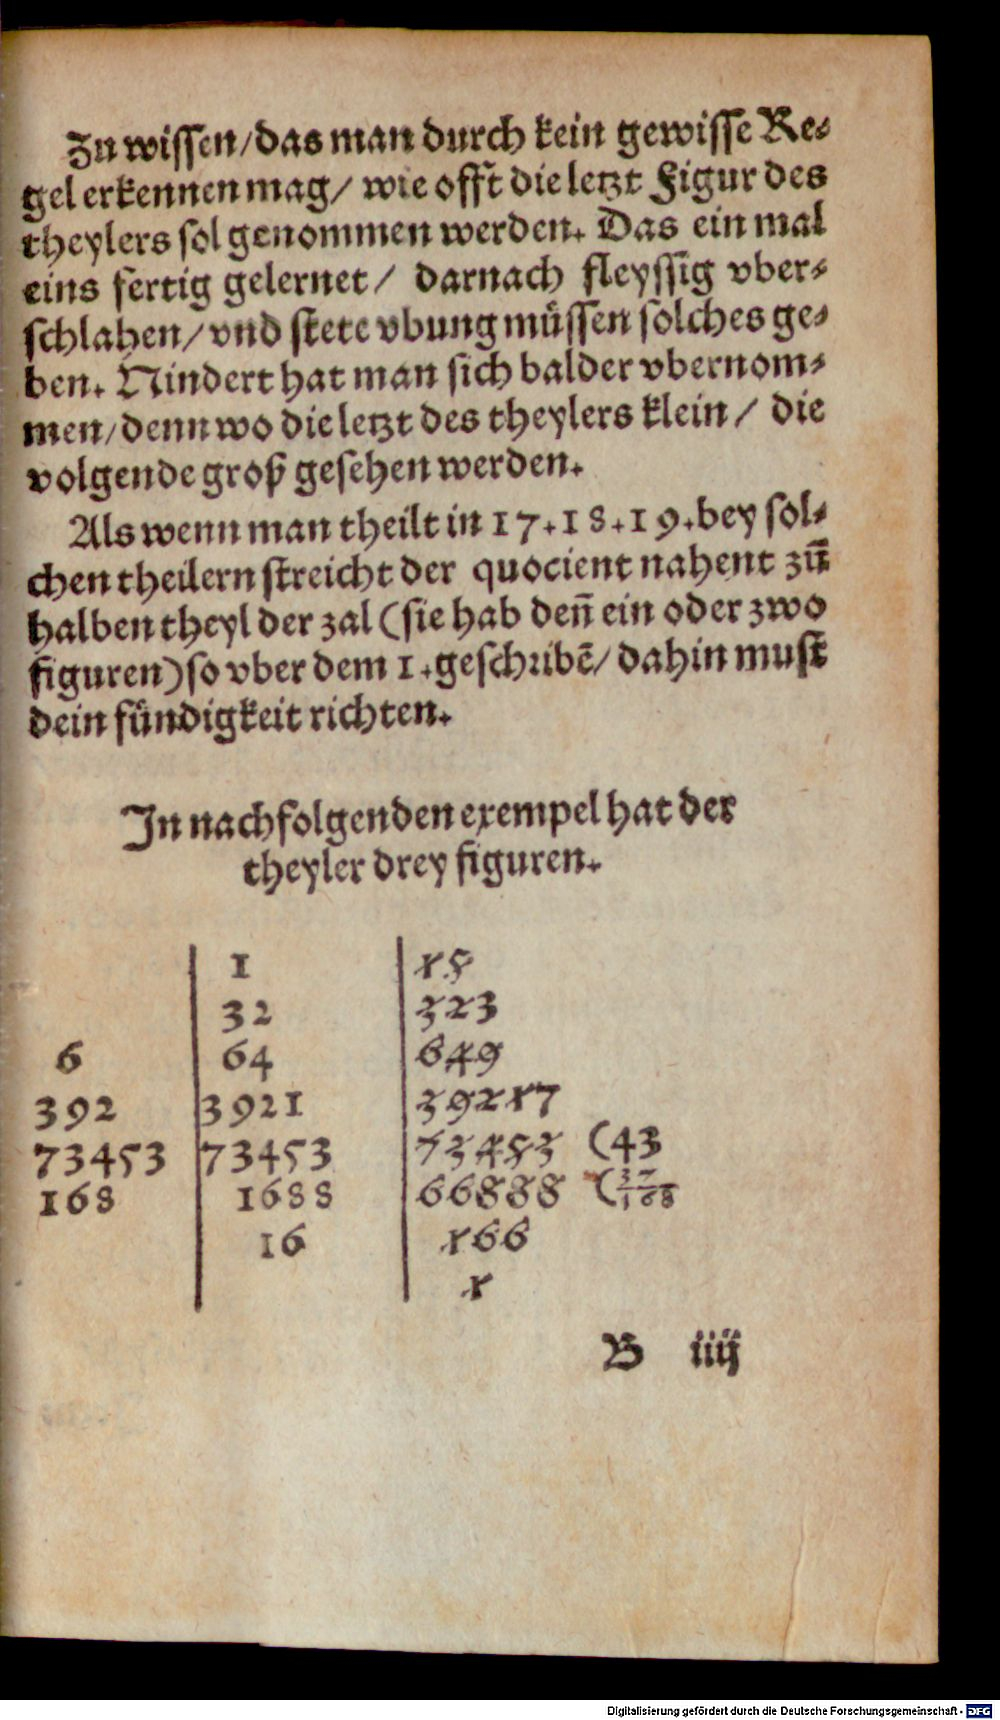 Zu wissen/das man durch kein gewisse Re⸗
gel erkennen mag/ wie offt die letzt Figur des
theylers sol genommen werden. Das ein mal
eins fertig gelernet/ darnach fleyssig vber⸗
schlahen/vnd stete vbung müssen solches ge⸗
ben. Nindert hat man sich balder vbernom⸗
men/denn wo die letzt des theylers klein/ die
volgende groß gesehen werden.
Als wenn man theilt in 17.18.19.bey sol⸗
chen theilern streicht der quocient nahent zū
halben theyl der zal (sie hab deñ ein oder zwo
figuren)so vber dem 1.geschribē/dahin must
dein fündigkeit richten.
In nachfolgenden exempel hat der
theyler drey figuren.
1 15
32 323
6 64 649
392 3921 39217
73453 73453 73453 (43
168 1688 66888 (37/168
16 166
1
B iiij
Digitalisierung gefördert durch die Deutsche Forschungsgemeinschaft - DFG